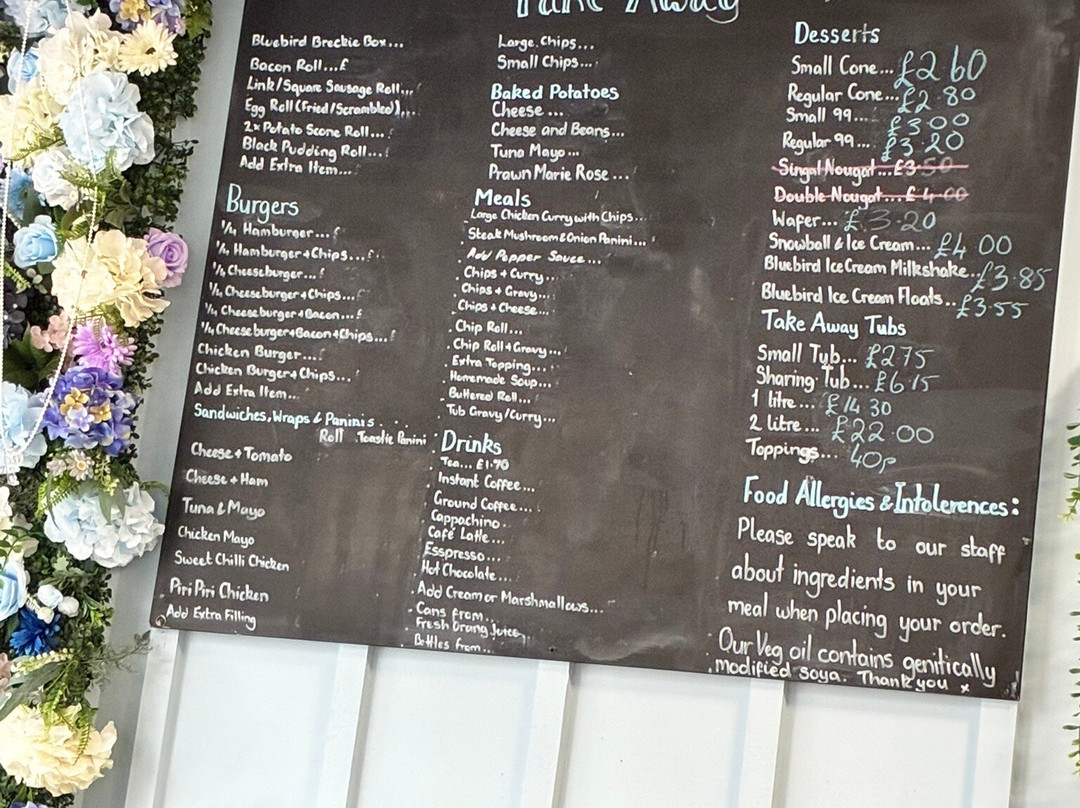 Take Away
Bluebird Breckie Box...
Bacon Roll...£
Link/Square Sausage Roll...
Egg Roll (Fried/Scrambled)...
2x Potato Scone Roll...
Black Pudding Roll...
Add Extra Item...
Burgers
1/4 Hamburger...£
1/4 Hamburger+Chips...£
1/4 Cheeseburger...£
1/4 Cheeseburger+Chips...£
1/4 Cheeseburger+Bacon...£
1/4 Cheeseburger+Bacon+Chips...£
Chicken Burger...£
Chicken Burger+Chips...
Add Extra Item...
Sandwiches, Wraps & Paninis
Roll Toastie Panini
Cheese + Tomato
Cheese + Ham
Tuna & Mayo
Chicken Mayo
Sweet Chilli Chicken
Piri Piri Chicken
Add Extra Filling
Large Chips...
Small Chips...
Baked Potatoes
Cheese...
Cheese and Beans...
Tuna Mayo...
Prawn Marie Rose...
Meals
Large Chicken Curry with Chips...
Steak Mushroom & Onion Panini...
Add Pepper Sauce...
Chips + Curry...
Chips + Gravy...
Chips + Cheese...
Chip Roll...
Chip Roll + Gravy...
Extra Topping...
Homemade Soup...
Buttered Roll...
Tub Gravy/Curry...
Drinks
Tea... £1.90
Instant Coffee...
Ground Coffee...
Cappachino.
Café Latte...
Esspresso...
Hot Chocolate...
Add Cream or Marshmallows...
Cans from...
Fresh Orang Juice
Bottles from...
Desserts
Small Cone... £2.60
Regular Cone... £2.80
Small 99... £3.00
Regular 99... £3.20
Singal Nougat... £3.50
Double Nougat... £4.00
Wafer... £3.20
Snowball & Ice Cream... £4.00
Bluebird Ice Cream Milkshake.. £3.85
Bluebird Ice Cream Floats.. £3.55
Take Away Tubs
Small Tub... £2.75
Sharing Tub... £6.15
1 litre... £14.30
2 litre... £22.00
Toppings... 40p
Food Allergies & Intolerences:
Please speak to our staff
about ingredients in your
meal when placing your order.
Our Veg oil contains genitically
modified soya. Thank you x